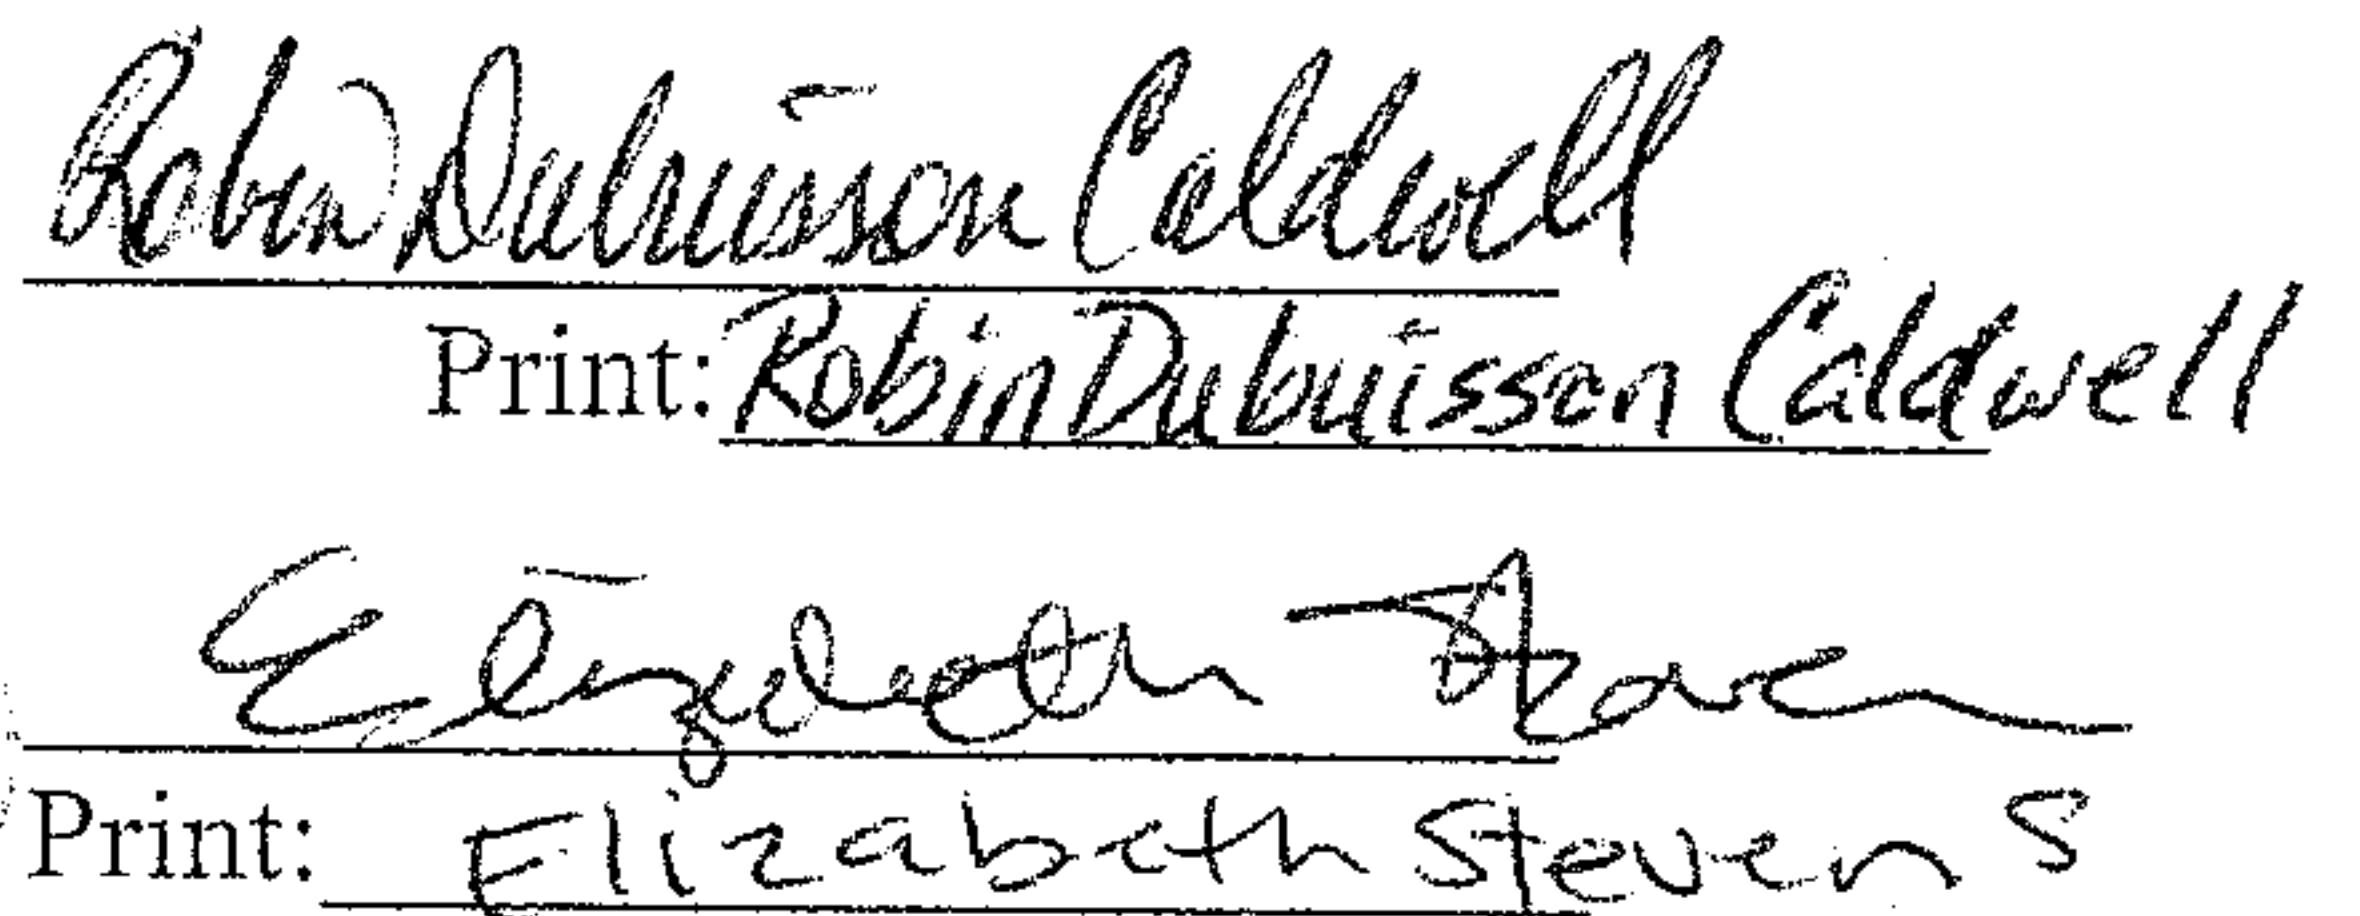 Robin Dubuisson Caldwell
Print: Robin Dubuisson Caldwell
Elizabeth Steven
Print: Elizabeth Stevens